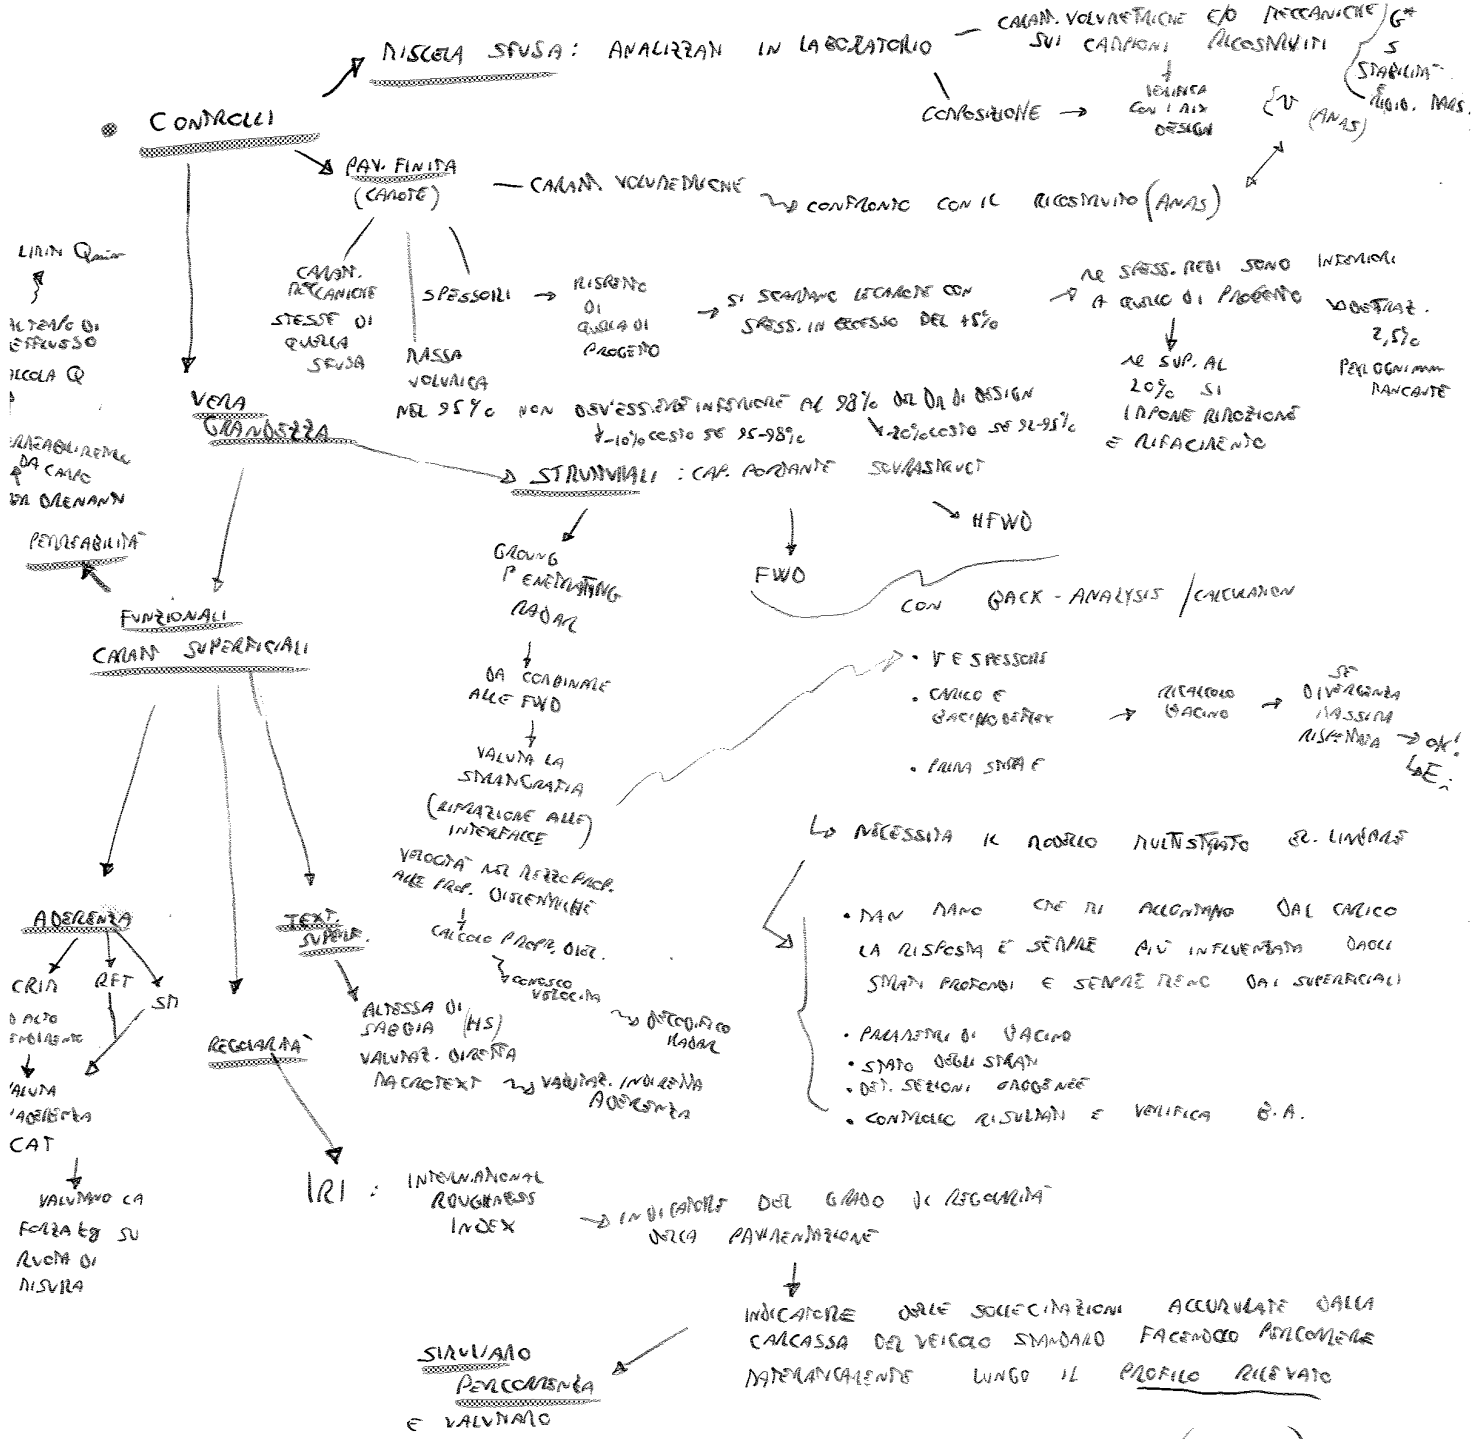 CARATT. VOLUMETRICHE E/O MECCANICHE
SUI CAMPIONI RICOSTRUITI
G*
S
STABILITÀ
RIGID. MARS.
MISCELA SFUSA: ANALIZZATI IN LABORATORIO
COMPOSIZIONE →
VERIFICA
CON I MIX
DESIGN
(ANAS)
• CONTROLLI
PAV. FINITA
(CAROTE)
— CARATT. VOLUMETRICHE
CONFRONTO CON IL RICOSTRUITO (ANAS)
CARATT.
MECCANICHE
STESSE DI
QUELLA
SFUSA
MASSA
VOLUMICA
SPESSORI →
RISPETTO
DI
QUELLA DI
PROGETTO
→ SI SCARTANO LE CAROTE CON
SPESS. IN ECCESSO DEL +5%
→ SE SPESS. MEDI SONO INFERIORI
A QUELLO DI PROGETTO
DETRAZ.
2,5%
PER OGNI mm
MANCANTE
SE SUP. AL
20% SI
IMPONE RIMOZIONE
E RIFACIMENTO
NEL 95% NON DEV'ESSERE INFERIORE AL 98% DEL DM DI DESIGN
-10% COSTO SE 95-98%
-20% COSTO SE 92-95%
LIMITI Qmin
AL TEMPO DI
EFFLUSSO
ALCOLA Q
DA CAMPO
ER DRENANTI
PERMEABILITÀ
VERA
GRANDEZZA
STRUTTURALI: CAP. PORTANTE SOVRASTRUCT
HFWD
FWD
CON BACK-ANALYSIS/CALCULATION
GROUNG
PENETRATING
RADAR
DA COMBINARE
ALLE FWD
VALUTA LA
STRATIGRAFIA
(RIFRAZIONE ALLE
INTERFACCE)
VELOCITÀ NEL MEZZO PROP.
ALLE PROP. DIELETTRICHE
CALCOLO PROPR. DIEL.
CONOSCO
VELOCITA
DECODIFICO
RADAR
FUNZIONALI
CARATT SUPERFICIALI
• V E SPESSORI
• CARICO E
BACINO DEFLEX
• PRIMA STIMA E
→ RICALCOLO
BACINO
→ SE
DIVERGENZA
MASSIMA
RISPETTATA → OK!
Ei
NECESSITA IL MODELLO MULTISTRATO EL. LINEARE
• MAN MANO CHE MI ALLONTANO DAL CARICO
LA RISPOSTA E SEMPRE PIÙ INFLUENZATA DAGLI
STRATI PROFONDI E SEMPRE MENO DAI SUPERFICIALI
• PARAMETRI DI BACINO
• STATO DEGLI STRATI
• DET. SEZIONI OMOGENEE
• CONTROLLO RISULTATI E VERIFICA B.A.
ADERENZA
CRIM
RFT
SM
D ALTO
ENDIMENTO
VALUTA
'ADERENZA
CAT
VALUTANO LA
FORZA tg SU
RUOTA DI
MISURA
TEXT.
SUPERF.
ALTEZZA DI
SABBIA (HS)
VALUTAZ. DIRETTA
MACROTEXT
VALUTAZ. INDIRETTA
ADERENZA
REGOLARITÀ
IRI :
INTERNATIONAL
ROUGHNESS
INDEX
→ INDICATORE DEL GRADO DI REGOLARITÀ
DELLA PAVIMENTAZIONE
INDICATORE DELLE SOLLECITAZIONI ACCUMULATE DALLA
CARCASSA DEL VEICOLO STANDARD FACENDOLO PERCORRERE
MATEMATICAMENTE LUNGO IL PROFILO RILEVATO
SIMULIAMO
PERCORRENZA
E VALUTIAMO